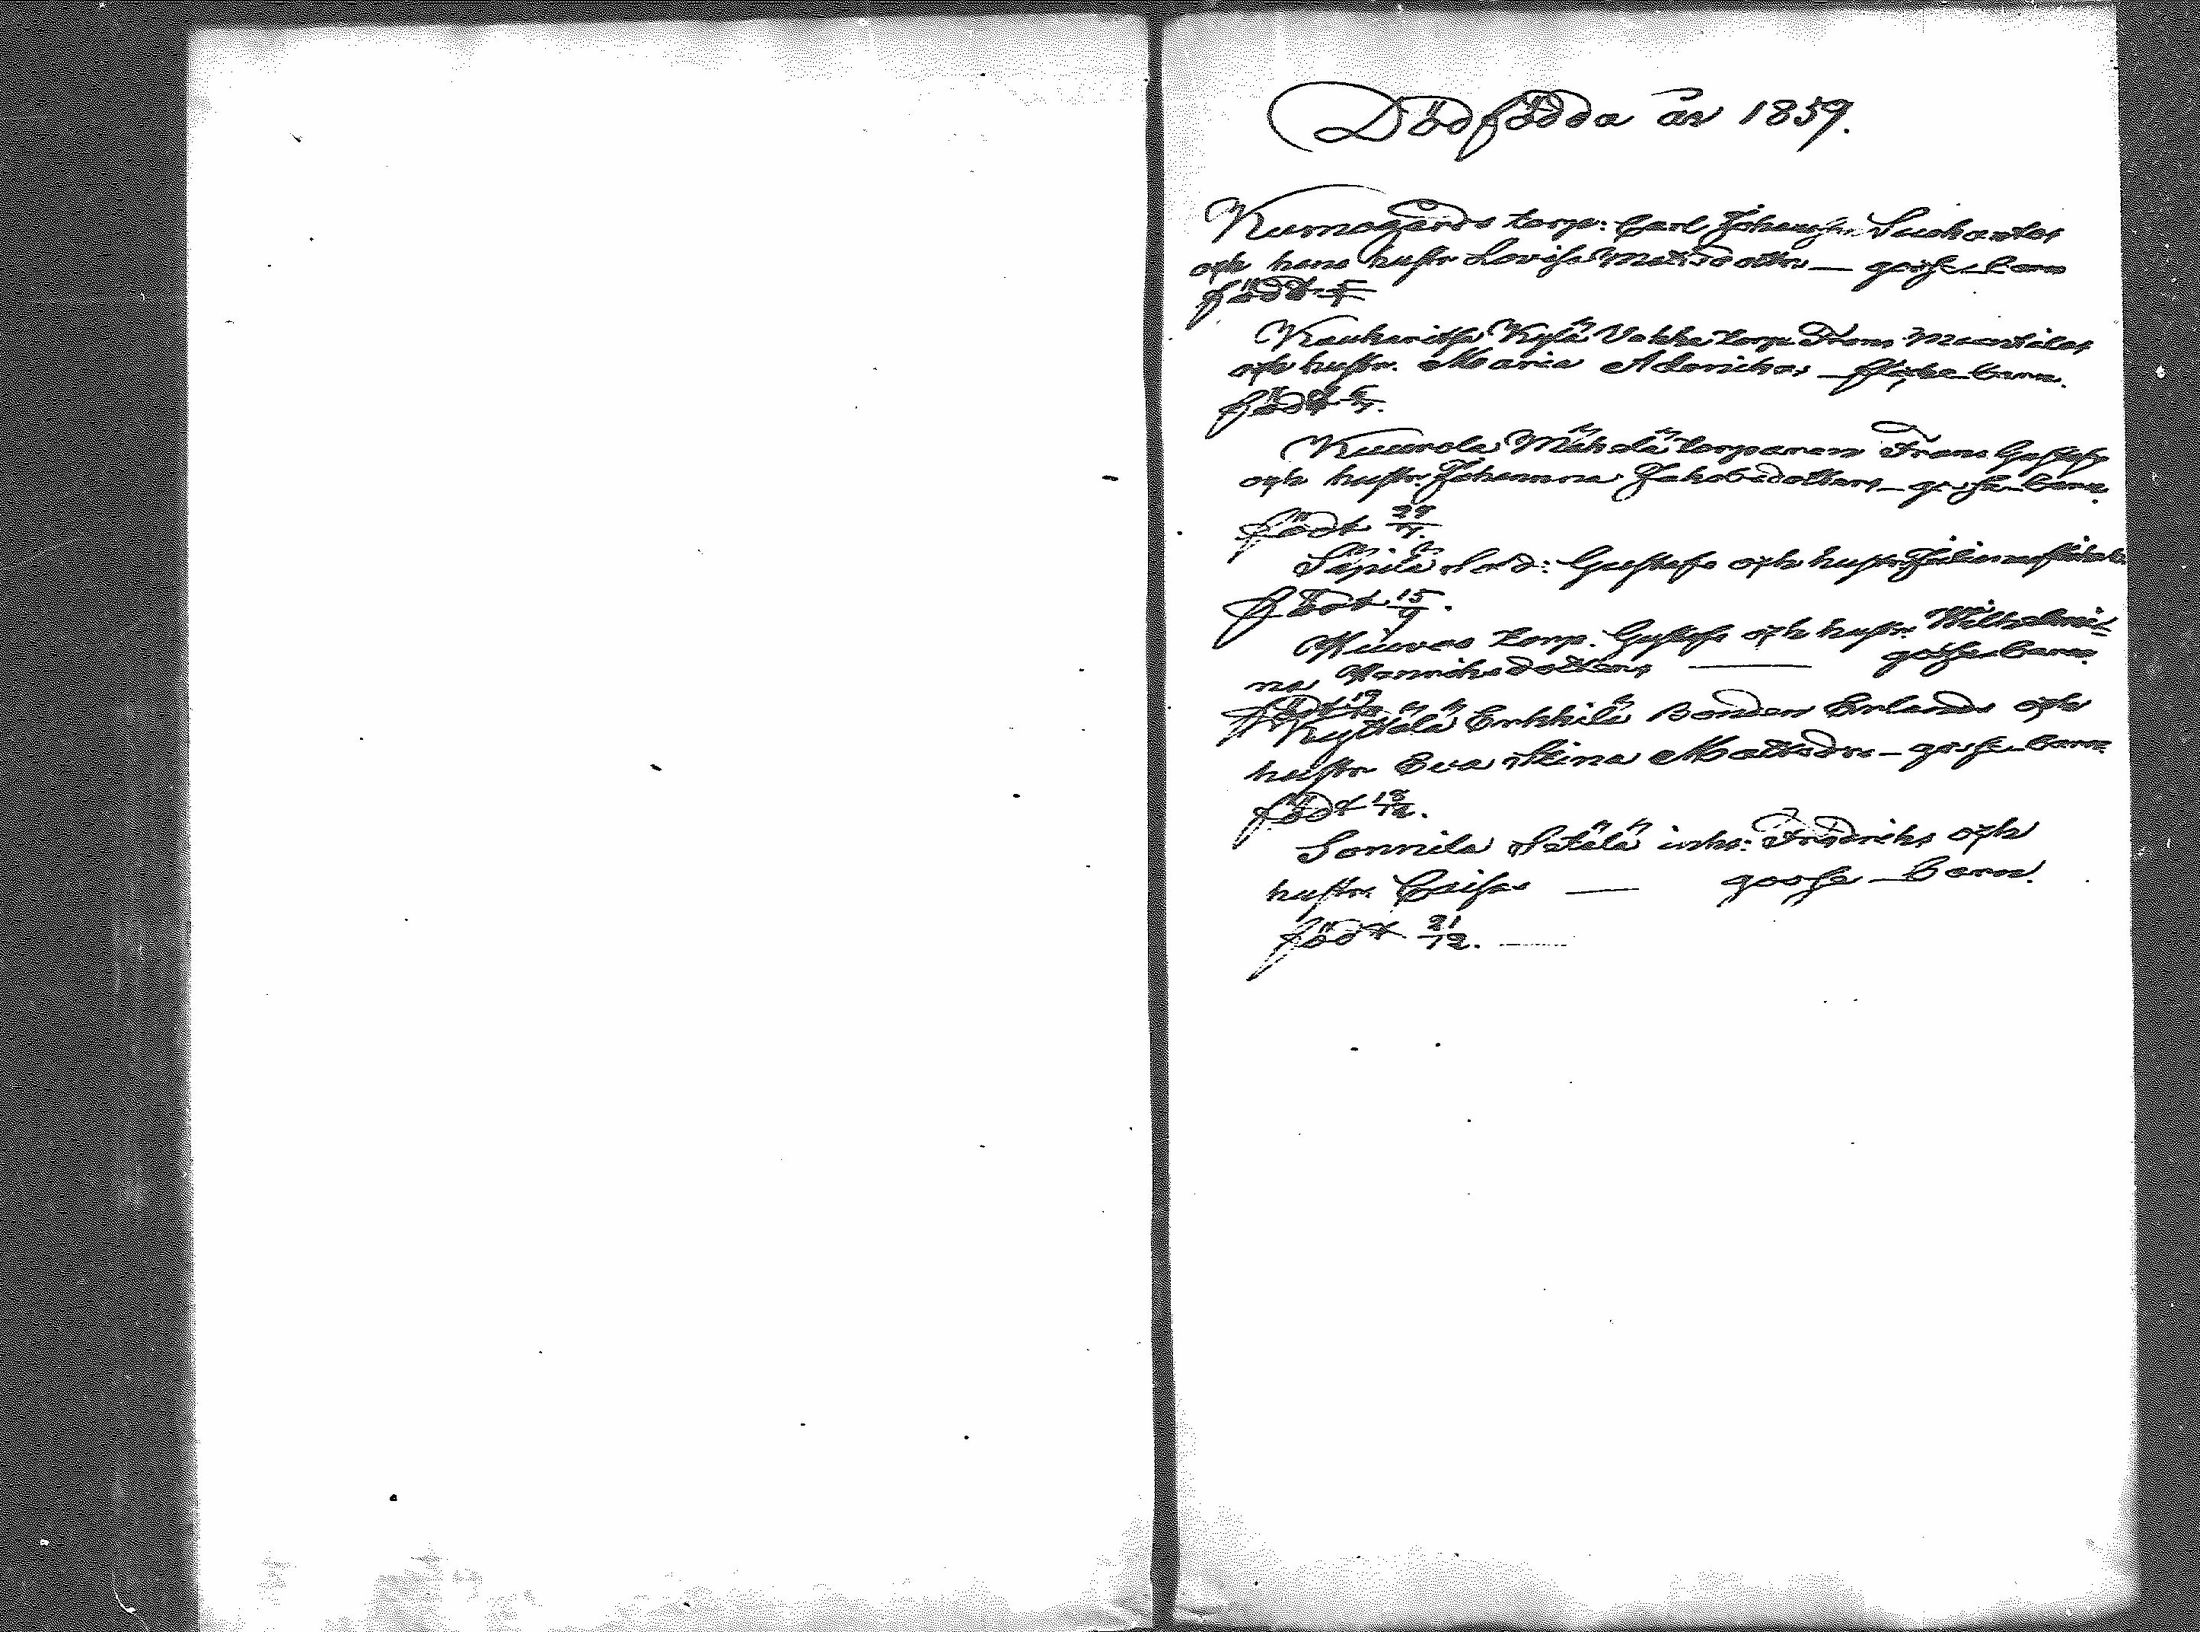 Dödfödda år 1859.
Kumogårds torp: Carl Johan Suckantas
och hans hustr Lovisa Matsdotter — gosse-barn
född
Kaukaritsa Kylä Vakka torp Frans Mantilas
och hustr. Maria Adonikas — flicke-barn.
född
Kuurola Mähälä torparen Frans Gustafs
och hustr. Johanna Jakobsdotters — gosse-barn.
född 29/7.
Säpilä Sold: Gustafs och hustr.
född 15/9.
torp. Gustafs och hustr. Wilhelmi-
na Henriksdotters — gosse-barn
Kyttälä Erkkilä Bonden Erlands och
hustr Eva Stina Mattsdrs — gosse-barn
född 18/12.
Sonnila Sätälä inhs: Fredriks och
hustr. Caisas — gosse-barn.
född 21/12. —